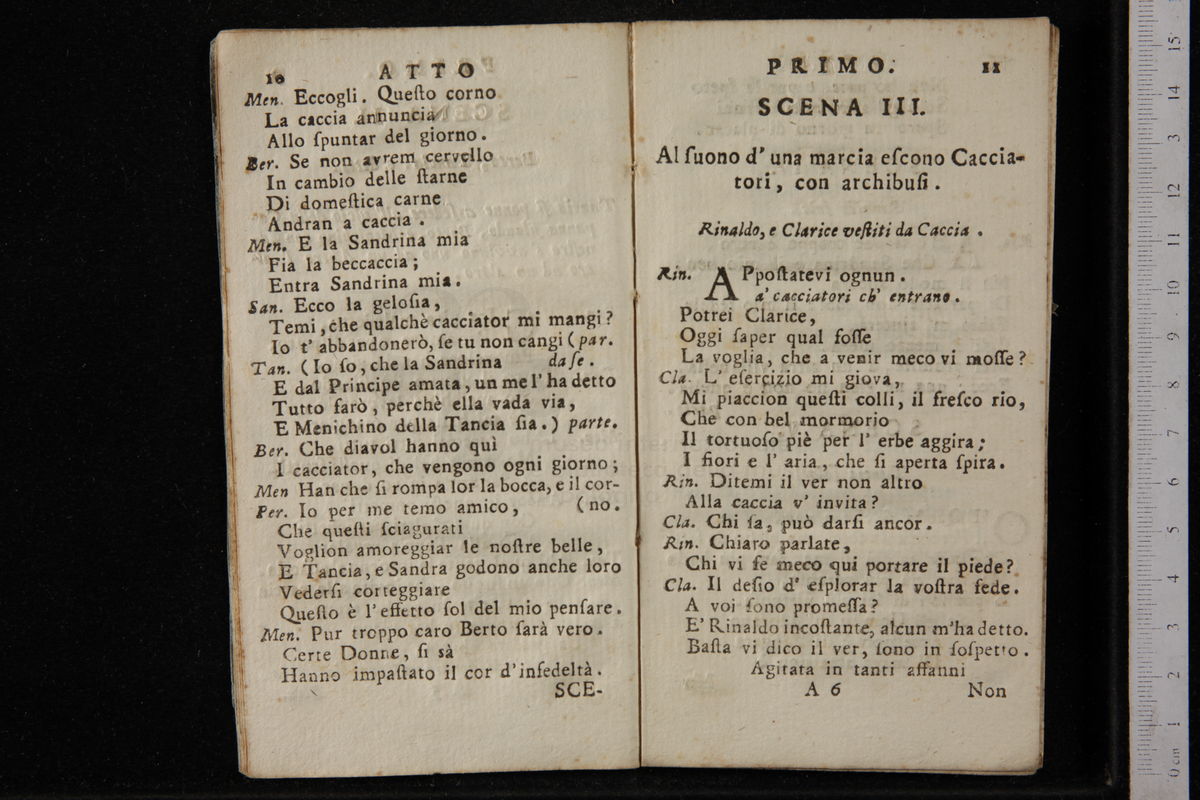 10 ATTO
Men. Eccogli. Queſto corno
La caccia annuncia
Allo ſpuntar del giorno.
Ber. Se non avrem cervello
In cambio delle ſtarne
Di domeſtica carne
Andran a caccia.
Men. E la Sandrina mia
Fia la beccaccia;
Entra Sandrina mia.
San. Ecco la geloſia,
Temi, che qualchè cacciator mi mangi?
Io t' abbandonerò, ſe tu non cangi (par.
Tan. (Io ſo, che la Sandrina da ſe.
E dal Principe amata, un me l' ha detto
Tutto farò, perchè ella vada via,
E Menichino della Tancia ſia.) parte.
Ber. Che diavol hanno quì
I cacciator, che vengono ogni giorno;
Men Han che ſi rompa lor la bocca, e il cor-
Per. Io per me temo amico, (no.
Che queſti ſciagurati
Voglion amoreggiar le noſtre belle,
E Tancia, e Sandra godono anche loro
Vederſi corteggiare
Queſto è l'effetto ſol del mio penſare.
Men. Pur troppo caro Berto ſarà vero.
Certe Donne, ſi sà
Hanno impaſtato il cor d'infedeltà.
SCE-
PRIMO. 11
SCENA III.
Al ſuono d' una marcia eſcono Caccia-
tori, con archibuſi.
Rinaldo, e Clarice veſtiti da Caccia.
Rin. APpoſtatevi ognun.
a' cacciatori ch' entrano.
Potrei Clarice,
Oggi ſaper qual foſſe
La voglia, che a venir meco vi moſſe?
Cla. L' eſercizio mi giova,
Mi piaccion queſti colli, il freſco rio,
Che con bel mormorio
Il tortuoſo piè per l' erbe aggira;
I fiori e l' aria, che ſi aperta ſpira.
Rin. Ditemi il ver non altro
Alla caccia v' invita?
Cla. Chi ſa, può darſi ancor.
Rin. Chiaro parlate,
Chi vi fe meco qui portare il piede?
Cla. Il deſio d' eſplorar la voſtra fede.
A voi ſono promeſſa?
E' Rinaldo incoſtante, alcun m'ha detto.
Baſta vi dico il ver, ſono in ſoſpetto.
Agitata in tanti affanni
A 6 Non
0 cm 1 2 3 4 5 6 7 8 9 10 11 12 13 14 15